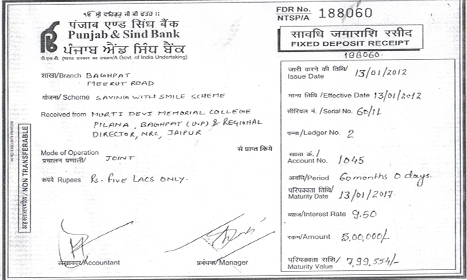 ਪੰਜਾਬ ਐਂਡ ਸਿੰਧ ਬੈਂਕ
Punjab & Sind Bank
पंजाब एण्ड सिंध बैंक
(A Govt. of India Undertaking)
FDR No.
NTSP/A 188060
सावधि जमाराशि रसीद
FIXED DEPOSIT RECEIPT
188060
शाखा/Branch BAGHPAT
MEERUT ROAD
योजना/Scheme SAVING WITH SMILE SCHEME
Received from MURTI DEVI MEMORIAL COLLEGE
PILANA, BAGHPAT (U.P) & REGIONAL
DIRECTOR, NRC, JAIPUR
से प्राप्त किये
Mode of Operation
प्रचालन प्रणाली/ JOINT
रूपये Rupees Rs. FIVE LACS ONLY.
NON TRANSFERABLE
लेखाकार/Accountant
प्रबंधक/Manager
जारी करने की तिथि/
Issue Date 13/01/2012
मान्य तिथि/Effective Date 13/01/2012
सीरियल नं./Serial No. 60/11
पन्ना/Ledger No. 2
खाता क्र./
Account No. 1045
अवधि/Period 60 months 0 days.
परिपक्वता तिथि/
Maturity Date 13/01/2017
ब्याज/Interest Rate 9.50
रकम/Amount 5,00,000/-
परिपक्वता राशि/
Maturity Value 7,99,554/-